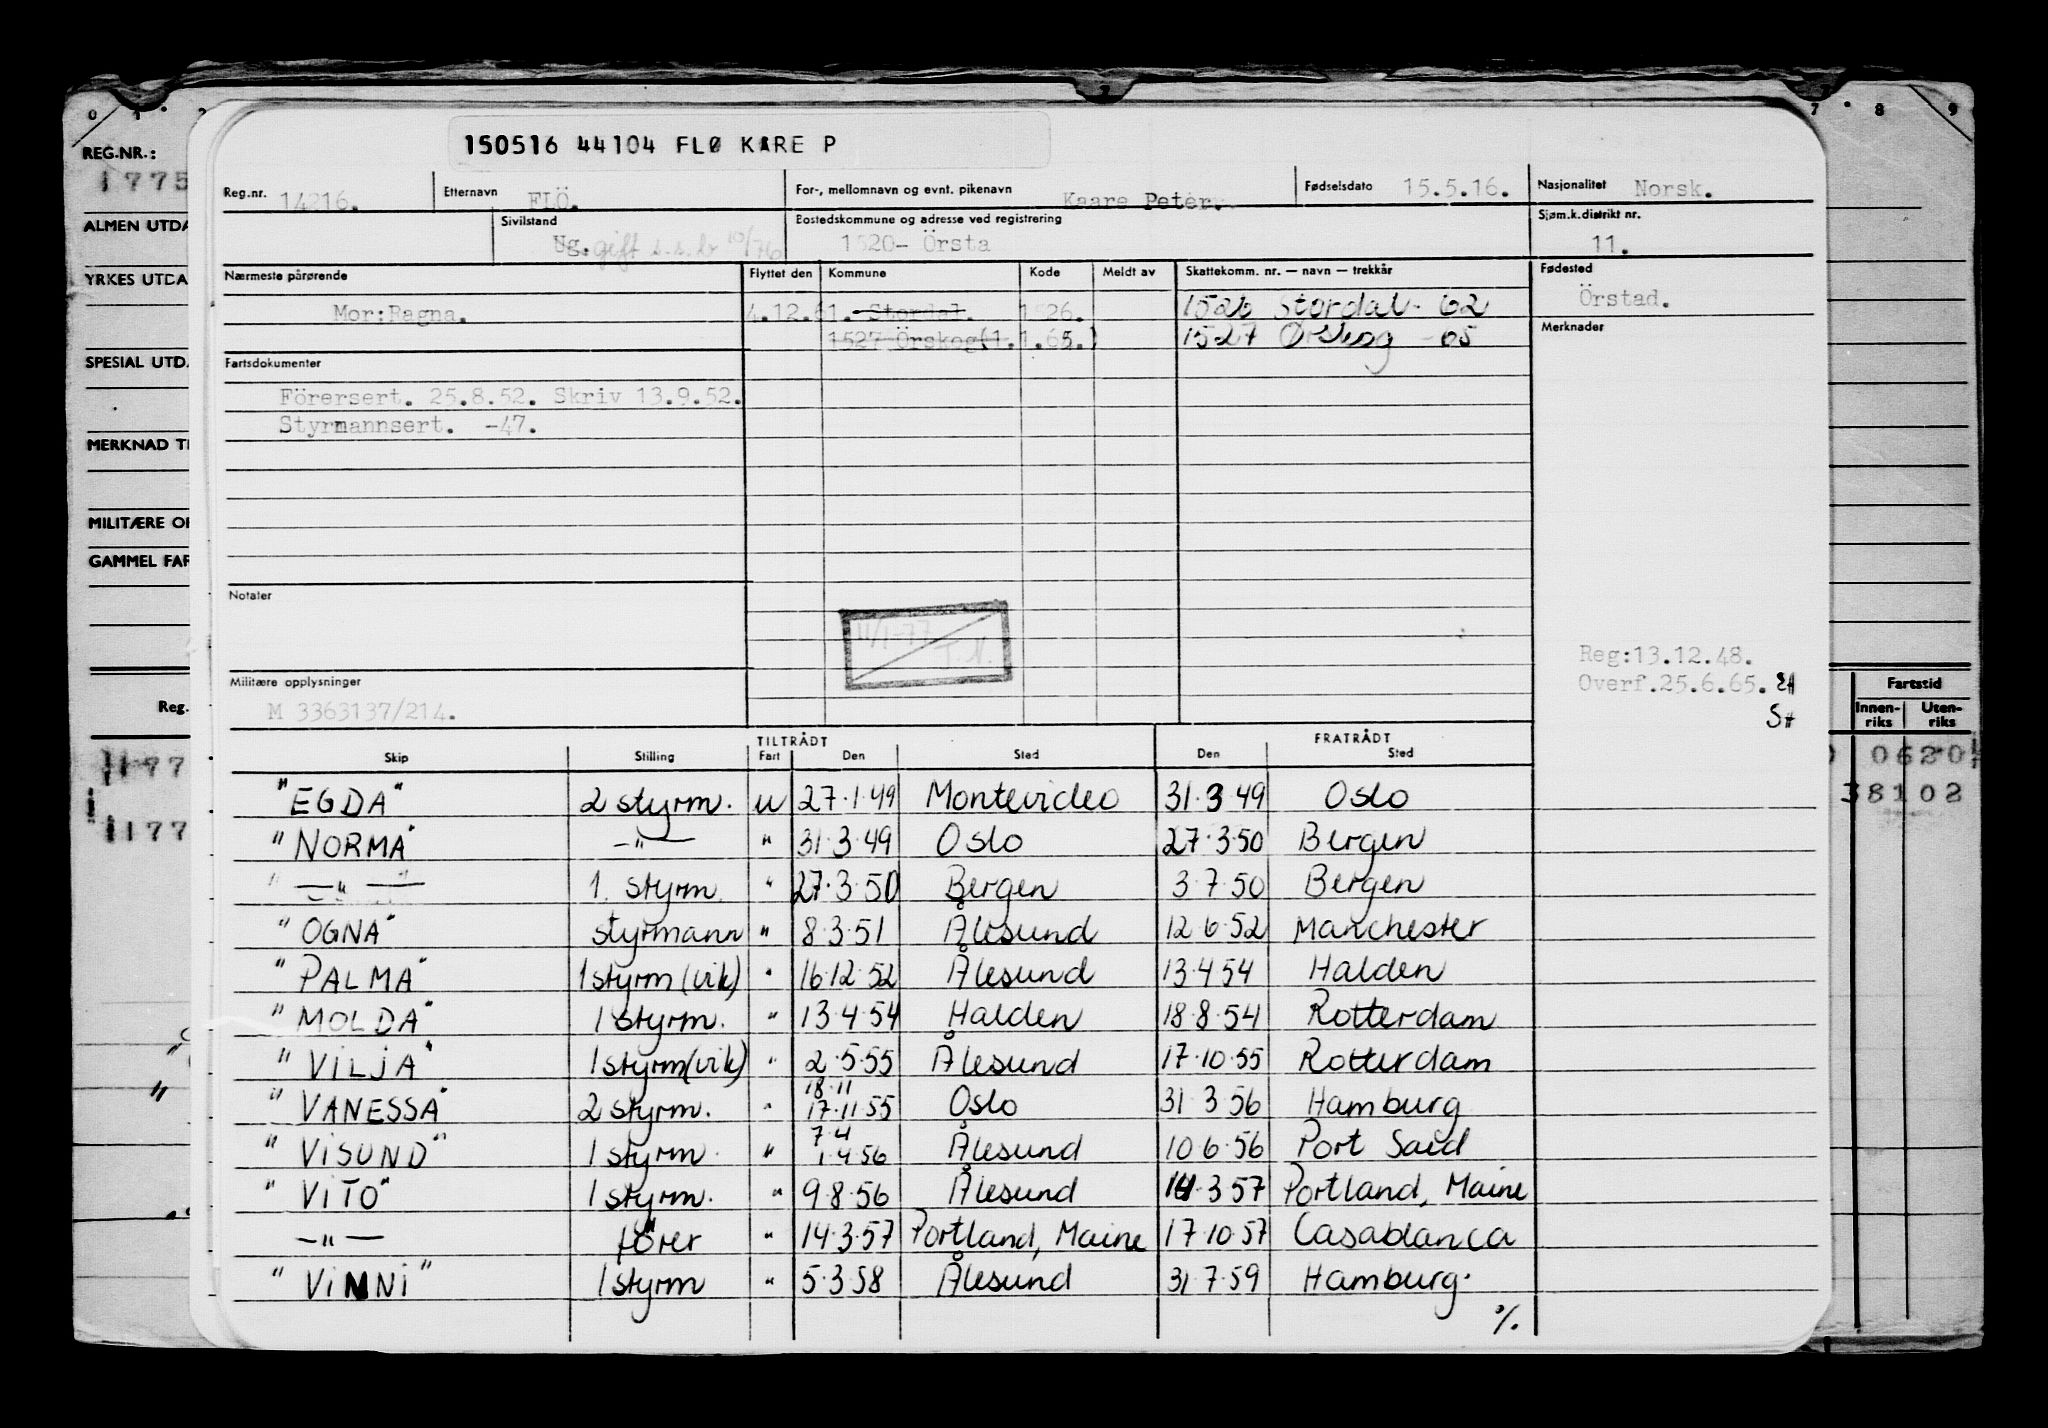 0 1 2 7 7 8 9
150516 44104 FLØ KARE P
REG.NR.:
1775
Reg.nr. 14216. Etternavn FLÖ. For-, mellomnavn og evnt. pikenavn Kaare Peter. Fødselsdato 15.5.16. Nasjonalitet Norsk.
ALMEN UTDA
Sivilstand Ug. gift s.s.b 10/76 Bostedskommune og adresse ved registrering 1520- Örsta Sjøm.k.distrikt nr. 11.
YRKES UTDA
Nærmeste pårørende Flyttet den Kommune Kode Meldt av Skattekomm. nr. — navn — trekkår Fødested
Mor:Ragna. 4.12.61. Stordal. 1526. 1526 Stordal - 62 Örstad.
1527 Örskog(1.1.65.) 1527 Ørskog - 65 Merknader
SPESIAL UTD.
Fartsdokumenter
Förersert. 25.8.52. Skriv 13.9.52.
Styrmannsert. -47.
MERKNAD TI
MILITÆRE OP
GAMMEL FAR
Notater
11/1-77
T.N.
Reg:13.12.48.
Overf.25.6.65.
Militære opplysninger
M 3363137/214.
Reg.
Fartstid
Innen-riks Uten-riks
TILTRÅDT FRATRÅDT
Skip Stilling Fart Den Sted Den Sted
177 0620
"EGDA" 2 styrm. u 27.1.49 Montevideo 31.3 49 Oslo
38102
177
"NORMA" —"— " 31.3.49 Oslo 27.3.50 Bergen
" —"— " 1. styrm. " 27.3.50 Bergen 3.7.50 Bergen
"OGNA" styrmann " 8.3.51 Ålesund 12 6.52 Manchester
"PALMA" 1 styrm (vik) " 16.12.52 Ålesund 13.4 54 Halden
"MOLDA" 1 styrm. " 13.4.54 Halden 18.8.54 Rotterdam
"VILJA" 1 styrm(vik) " 2.5.55 Ålesund 17.10.55 Rotterdam
18.11
"VANESSA" 2 styrm. " 17.11 55 Oslo 31 3 56 Hamburg
7.4
"VISUND" 1 styrm. " 1.4 56 Ålesund 10 6.56 Port Said
"VITO" 1 styrm. " 9.8.56 Ålesund 14.3 57 Portland, Maine
—"— förer " 14.3.57 Portland, Maine 17.10.57 Casablanca
"VINNI" 1 styrm " 5.3.58 Ålesund 31.7.59 Hamburg.
%.